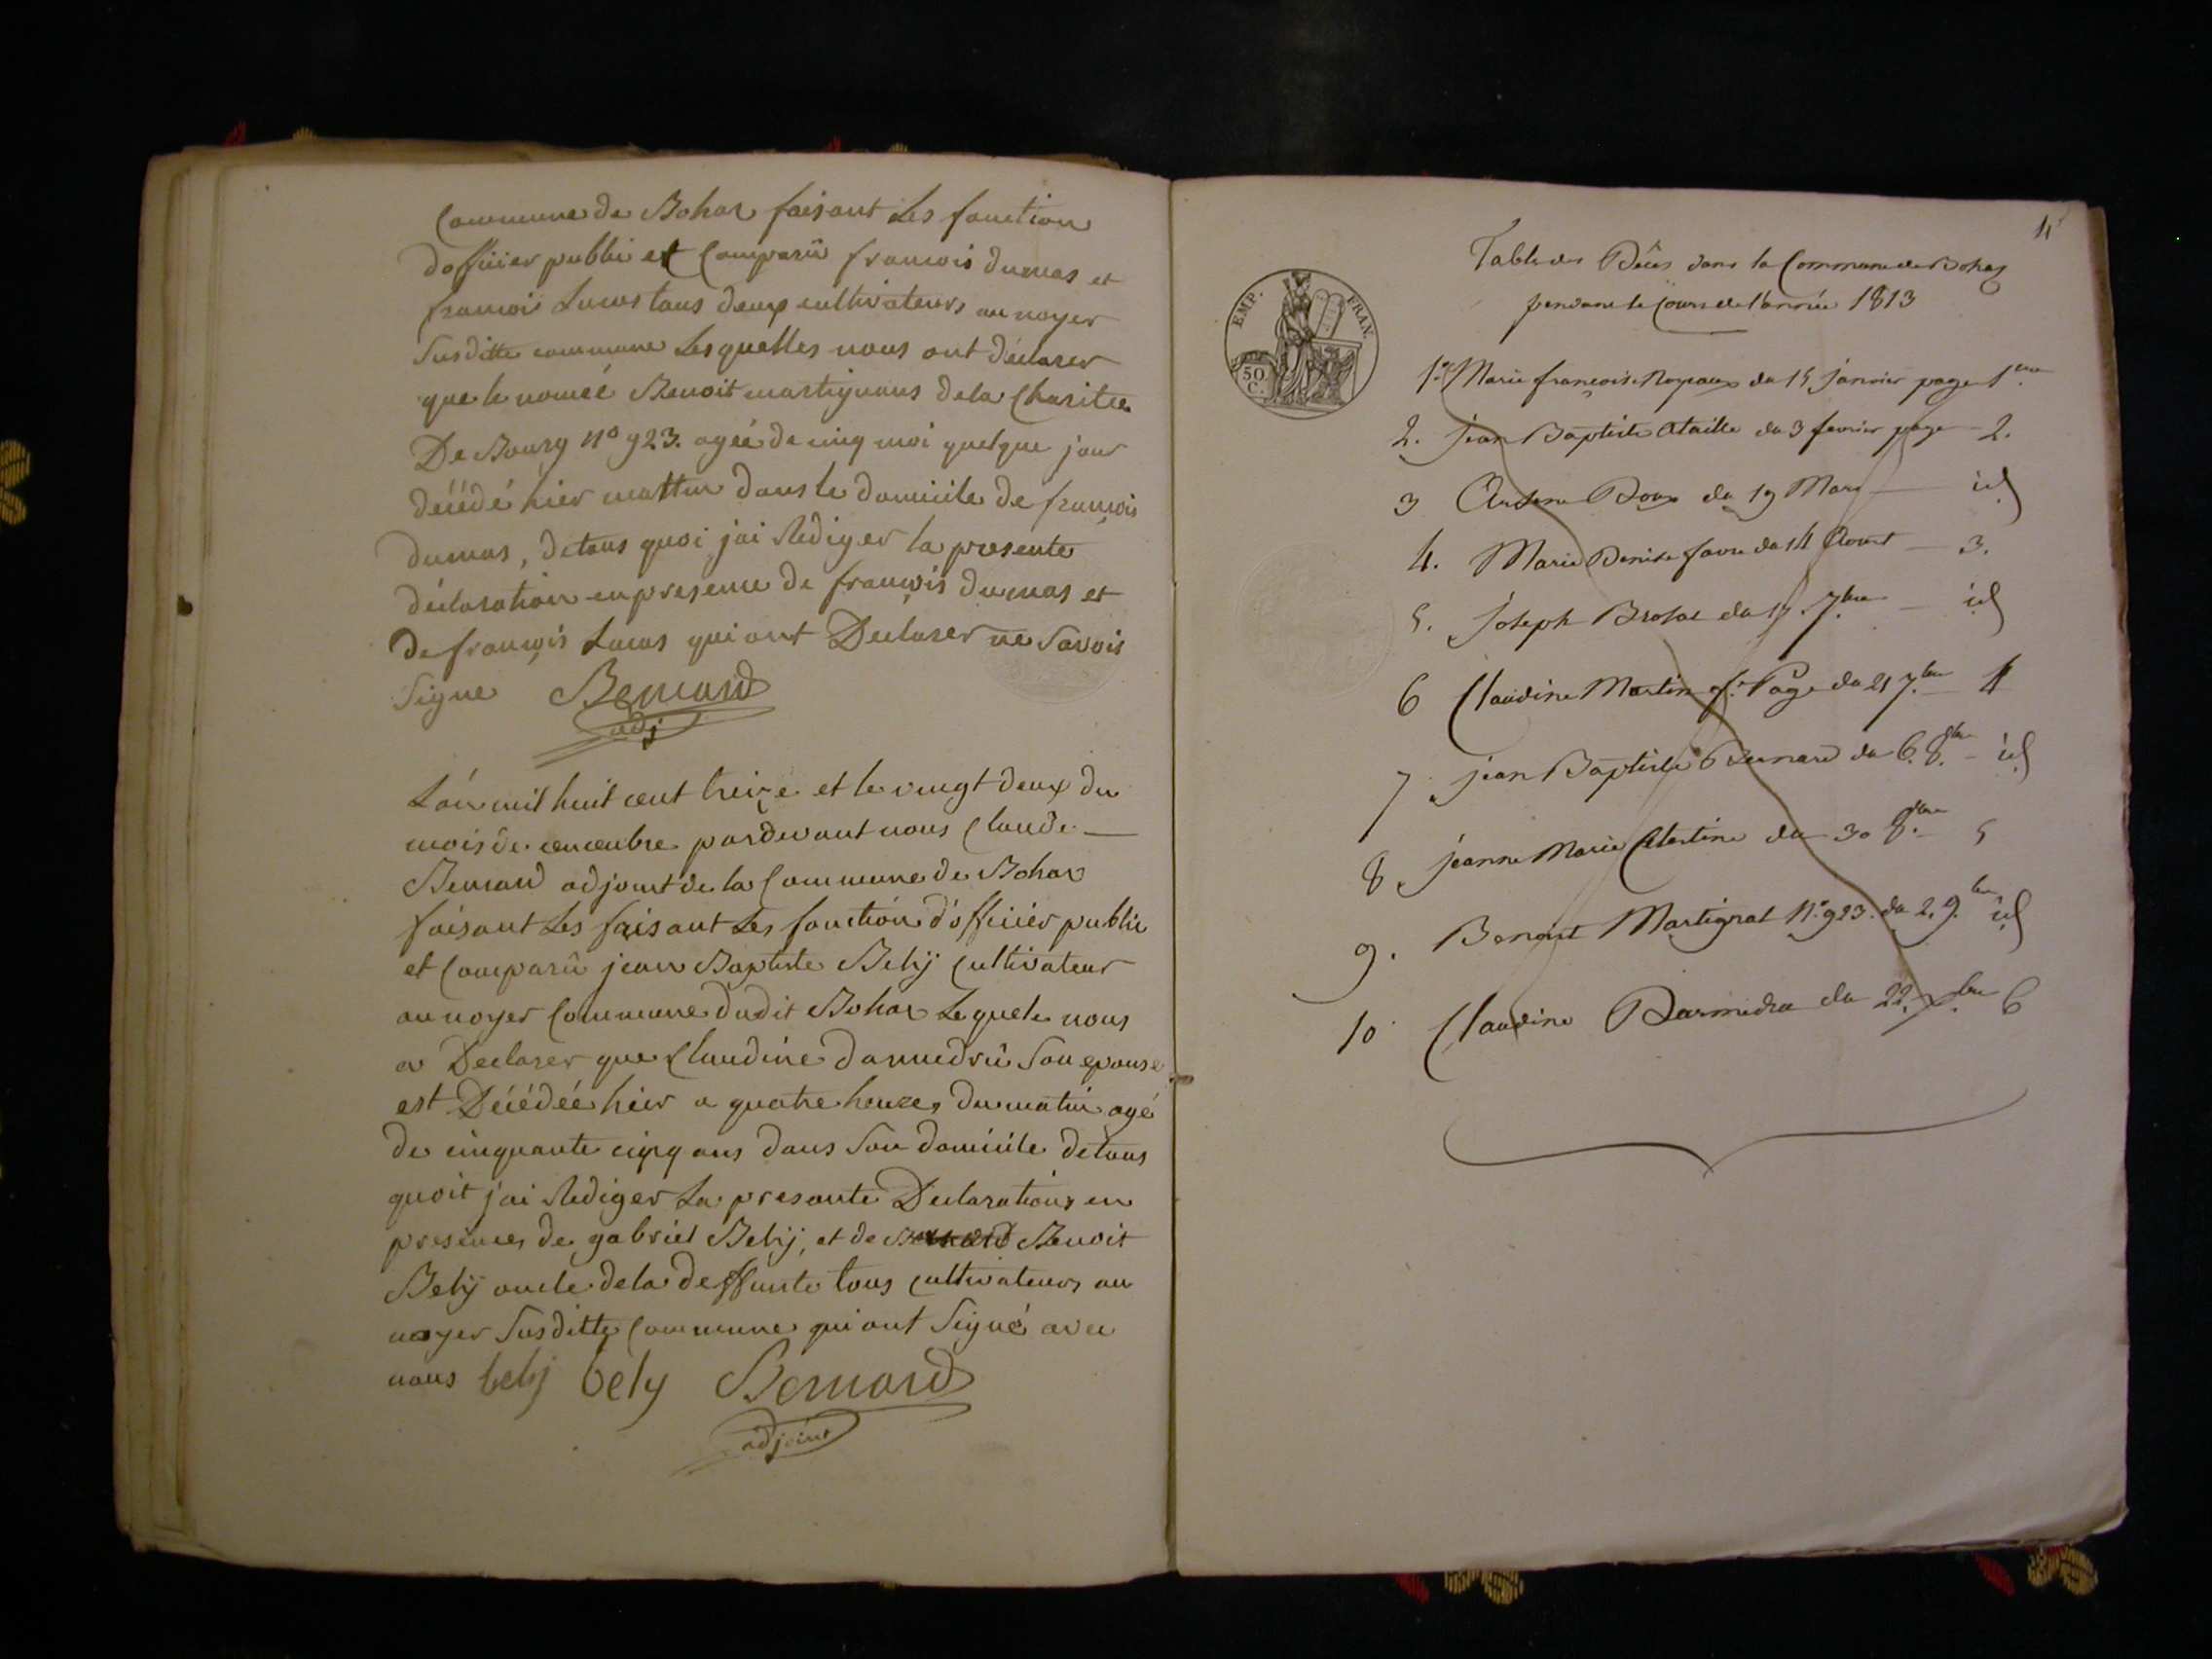 Commune de Bohas faisant Les fonction
dofficier publi et Comparû francois dumas et
francois Lucas tous deux cultivateurs au noyer
Susditte commune Lesquelles nous ont déclarer
que le noméé Benoit martignans dela Charitee
De Bourg n° 923. ageé de cinq moi quelque jour
décédé hier mattin dans le domicile de françois
dumas, detous quoi jai Rediger la presente
déclaration enpresence de françois dumas et
de françois Lucas qui ont Declarer ne Savois
Signe Bernard
adj
L'an mil huit cent treize et le vingt deux du
mois de pardevant nous Claude
Bernard adjoint de la Commune de Bohas
faisant Les faisant Les fonction d'officier public
et Comparû jean Baptiste Belij Cultivateur
au noyer Commune dudit Bohas Lequele nous
a Declarer que Claudine darmedru Son epouse
est Décédéé hier a quatre heuzes du matin agé
de cinquante cinq ans dans Son domicile detous
quoit j'ai Rediger La presante Declarations en
presences de gabriel Belij, et de Benoit
Belij oncle dela deffunte tous cultivateurs au
noyer Susditte Commune qui ont Signé avec
nous belij bely Bernard
adjoint
EMP. FRAN.
50
C.
Table des Décés dans la Commune de Bohas
pendant le Cours de l'année 1813
1.° Marie françoise du 15 janvier page 1.ere
2. jean Baptiste Ataille du 3 fevrier page 2.
3 Doux du 19 Mars id
4. Marie Denise favre du 14 Aout 3.
5. joseph Brosse du 17. 7.bre id
6 Claudine Martin f.e Page du 21 7.bre 4
7 jean Baptiste Bernard du 6. 8.bre id
8 jeanne Marie Celestine du 30 8.bre 5
9. Benoit Martignat N.° 923. du 2. 9.bre id
10 Claudine Darmedru du 22. x.bre 6